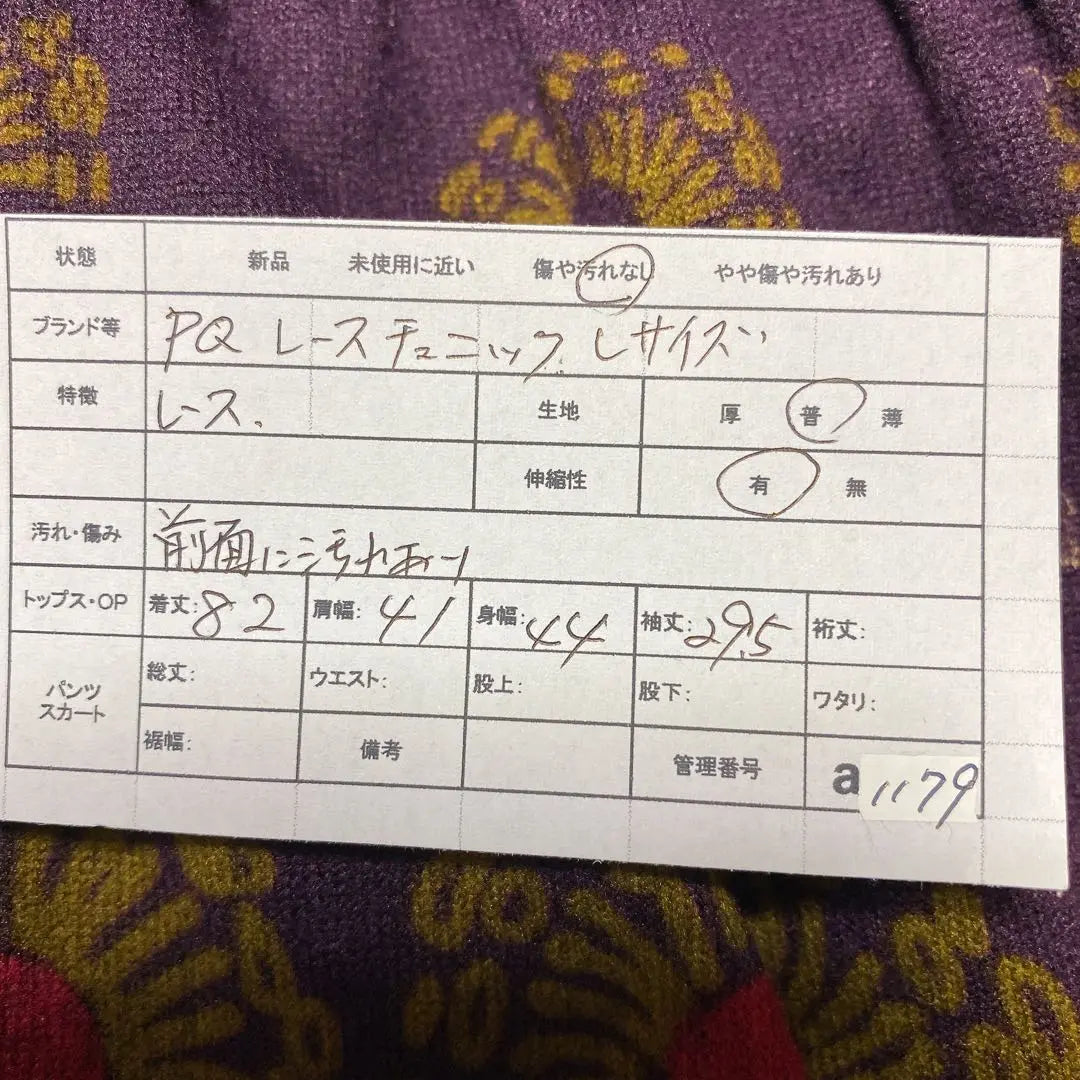 状態 新品 未使用に近い 傷や汚れなし やや傷や汚れあり
ブランド等 PQ レースチュニック Lサイズ
特徴 レース、 生地 厚 普 薄
伸縮性 有 無
汚れ・傷み 前面に汚れあり
トップス・OP 着丈:82 肩幅:41 身幅:44 袖丈:29.5 裄丈:
パンツ スカート 総丈: ウエスト: 股上: 股下: ワタリ:
裾幅: 備考 管理番号 a 1179